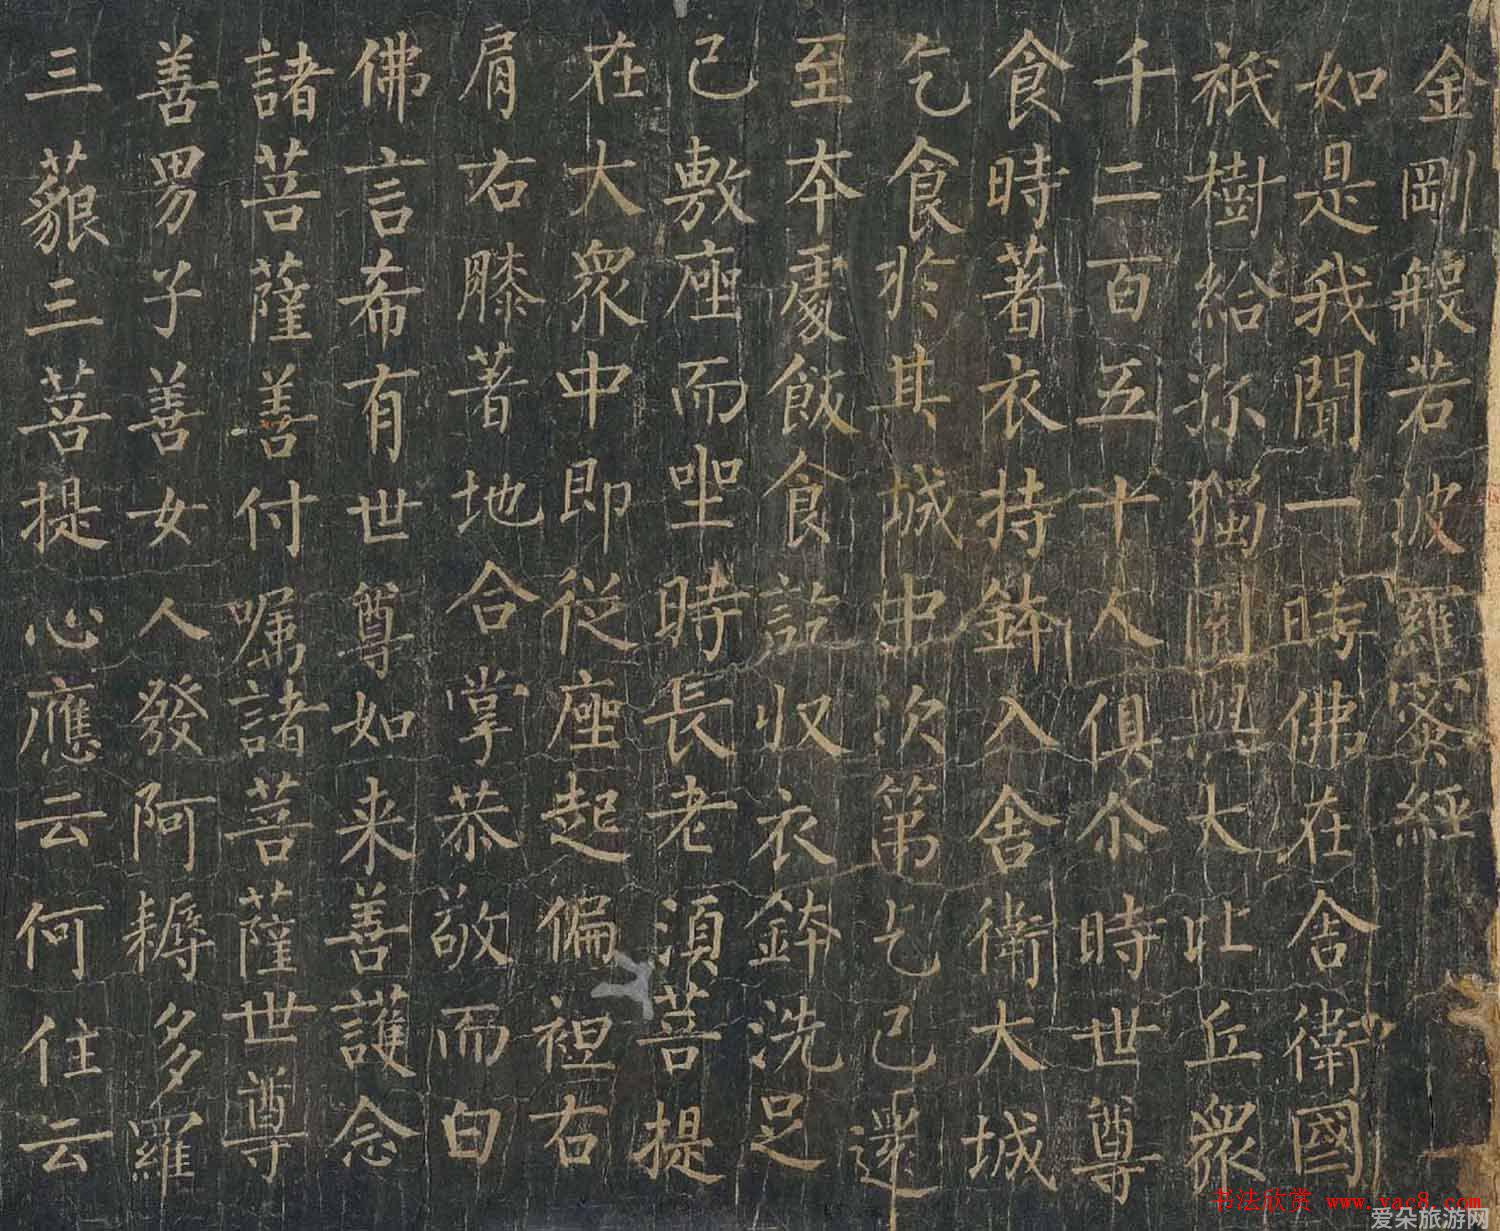 金剛般若波羅蜜經
如是我聞一時佛在舍衛國
祇樹給孤獨園與大比丘眾
千二百五十人俱尒時世尊
食時著衣持鉢入舍衛大城
乞食於其城中次第乞已還
至本處飯食訖収衣鉢洗足
已敷座而坐時長老須菩提
在大眾中即從座起偏袒右
肩右膝著地合掌恭敬而白
佛言希有世尊如来善護念
諸菩薩善付嘱諸菩薩世尊
善男子善女人發阿耨多羅
三藐三菩提心應云何住云
书法欣赏 www.yac8.com
爱朵旅游网